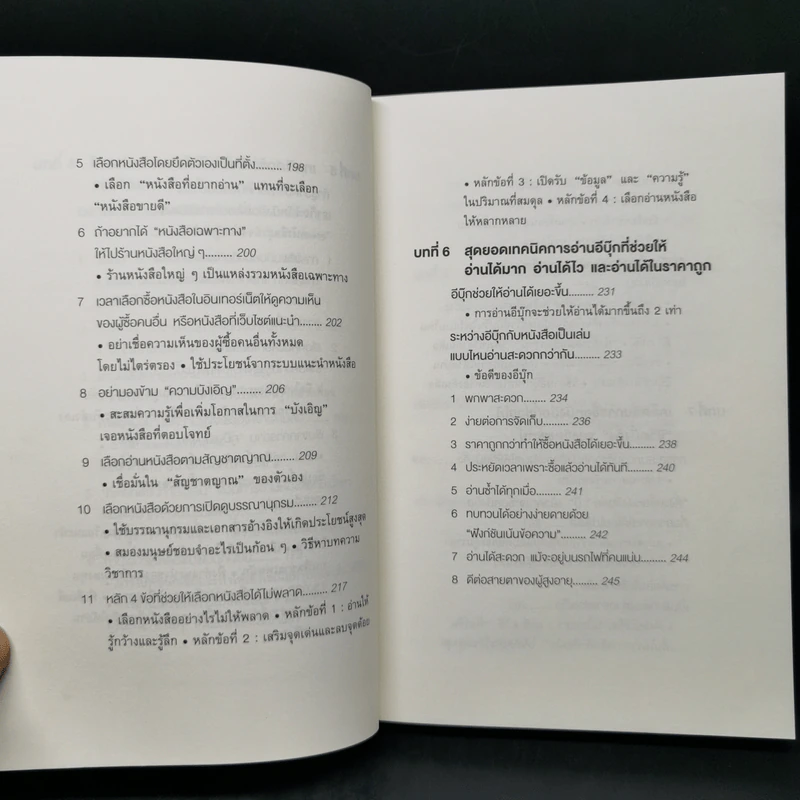 5 เลือกหนังสือโดยยึดตัวเองเป็นที่ตั้ง......... 198
• เลือก “หนังสือที่อยากอ่าน” แทนที่จะเลือก
“หนังสือขายดี”
6 ถ้าอยากได้ “หนังสือเฉพาะทาง”
ให้ไปร้านหนังสือใหญ่ ๆ......... 200
• ร้านหนังสือใหญ่ ๆ เป็นแหล่งรวมหนังสือเฉพาะทาง
7 เวลาเลือกซื้อหนังสือในอินเทอร์เน็ตให้ดูความเห็น
ของผู้ซื้อคนอื่น หรือหนังสือที่เว็บไซต์แนะนำ........ 202
• อย่าเชื่อความเห็นของผู้ซื้อคนอื่นทั้งหมด
โดยไม่ไตร่ตรอง • ใช้ประโยชน์จากระบบแนะนำหนังสือ
8 อย่ามองข้าม “ความบังเอิญ” ........ 206
• สะสมความรู้เพื่อเพิ่มโอกาสในการ “บังเอิญ”
เจอหนังสือที่ตอบโจทย์
9 เลือกอ่านหนังสือตามสัญชาตญาณ........ 209
• เชื่อมั่นใน “สัญชาตญาณ” ของตัวเอง
10 เลือกหนังสือด้วยการเปิดดูบรรณานุกรม........ 212
• ใช้บรรณานุกรมและเอกสารอ้างอิงให้เกิดประโยชน์สูงสุด
• สมองมนุษย์ชอบจำอะไรเป็นก้อน ๆ • วิธีหาบทความ
วิชาการ
11 หลัก 4 ข้อที่ช่วยให้เลือกหนังสือได้ไม่พลาด........ 217
• เลือกหนังสืออย่างไรไม่ให้พลาด • หลักข้อที่ 1 : อ่านให้
รู้กว้างและรู้ลึก • หลักข้อที่ 2 : เสริมจุดเด่นและลบจุดด้อย
• หลักข้อที่ 3 : เปิดรับ “ข้อมูล” และ “ความรู้”
ในปริมาณที่สมดุล • หลักข้อที่ 4 : เลือกอ่านหนังสือ
ให้หลากหลาย
บทที่ 6 สุดยอดเทคนิคการอ่านอีบุ๊กที่ช่วยให้
อ่านได้มาก อ่านได้ไว และอ่านได้ในราคาถูก
อีบุ๊กช่วยให้อ่านได้เยอะขึ้น......... 231
• การอ่านอีบุ๊กจะช่วยให้อ่านได้มากขึ้นถึง 2 เท่า
ระหว่างอีบุ๊กกับหนังสือเป็นเล่ม
แบบไหนอ่านสะดวกกว่ากัน......... 233
• ข้อดีของอีบุ๊ก
1 พกพาสะดวก......... 234
2 ง่ายต่อการจัดเก็บ......... 236
3 ราคาถูกกว่าทำให้ซื้อหนังสือได้เยอะขึ้น......... 238
4 ประหยัดเวลาเพราะซื้อแล้วอ่านได้ทันที......... 240
5 อ่านซ้ำได้ทุกเมื่อ......... 241
6 ทบทวนได้อย่างง่ายดายด้วย
“ฟังก์ชันเน้นข้อความ”......... 242
7 อ่านได้สะดวก แม้จะอยู่บนรถไฟที่คนแน่น......... 244
8 ดีต่อสายตาของผู้สูงอายุ......... 245